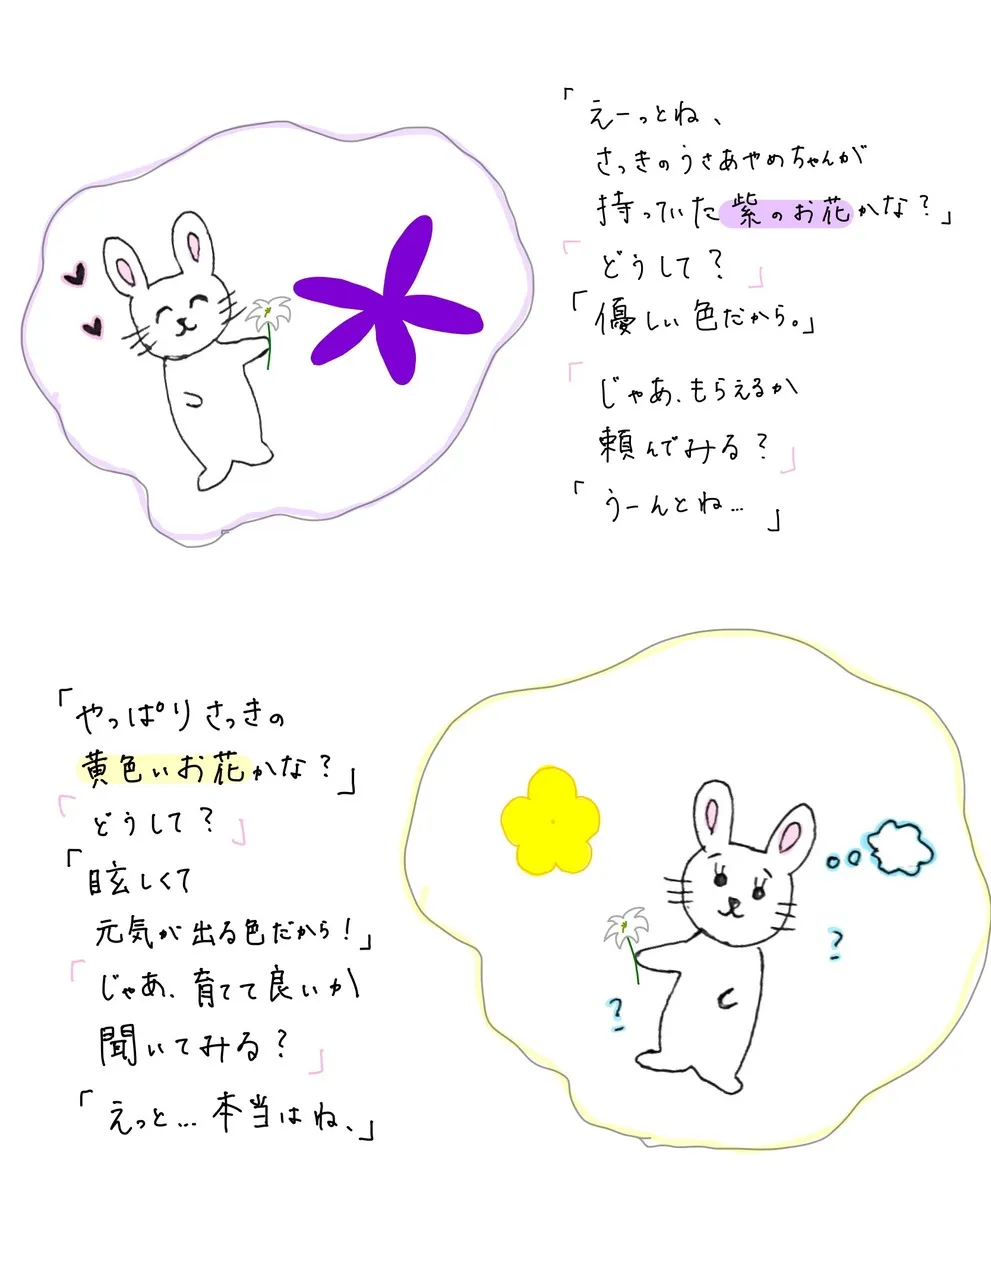 「えーっとね、
さっきのうさあやめちゃんが
持っていた紫のお花かな？」
「どうして？」
「優しい色だから。」
「じゃあ、もらえるか
頼んでみる？」
「うーんとね…」
「やっぱりさっきの
黄色いお花かな？」
「どうして？」
「眩しくて
元気が出る色だから！」
「じゃあ、育てて良いか
聞いてみる？」
「えっと…本当はね、」
?
?